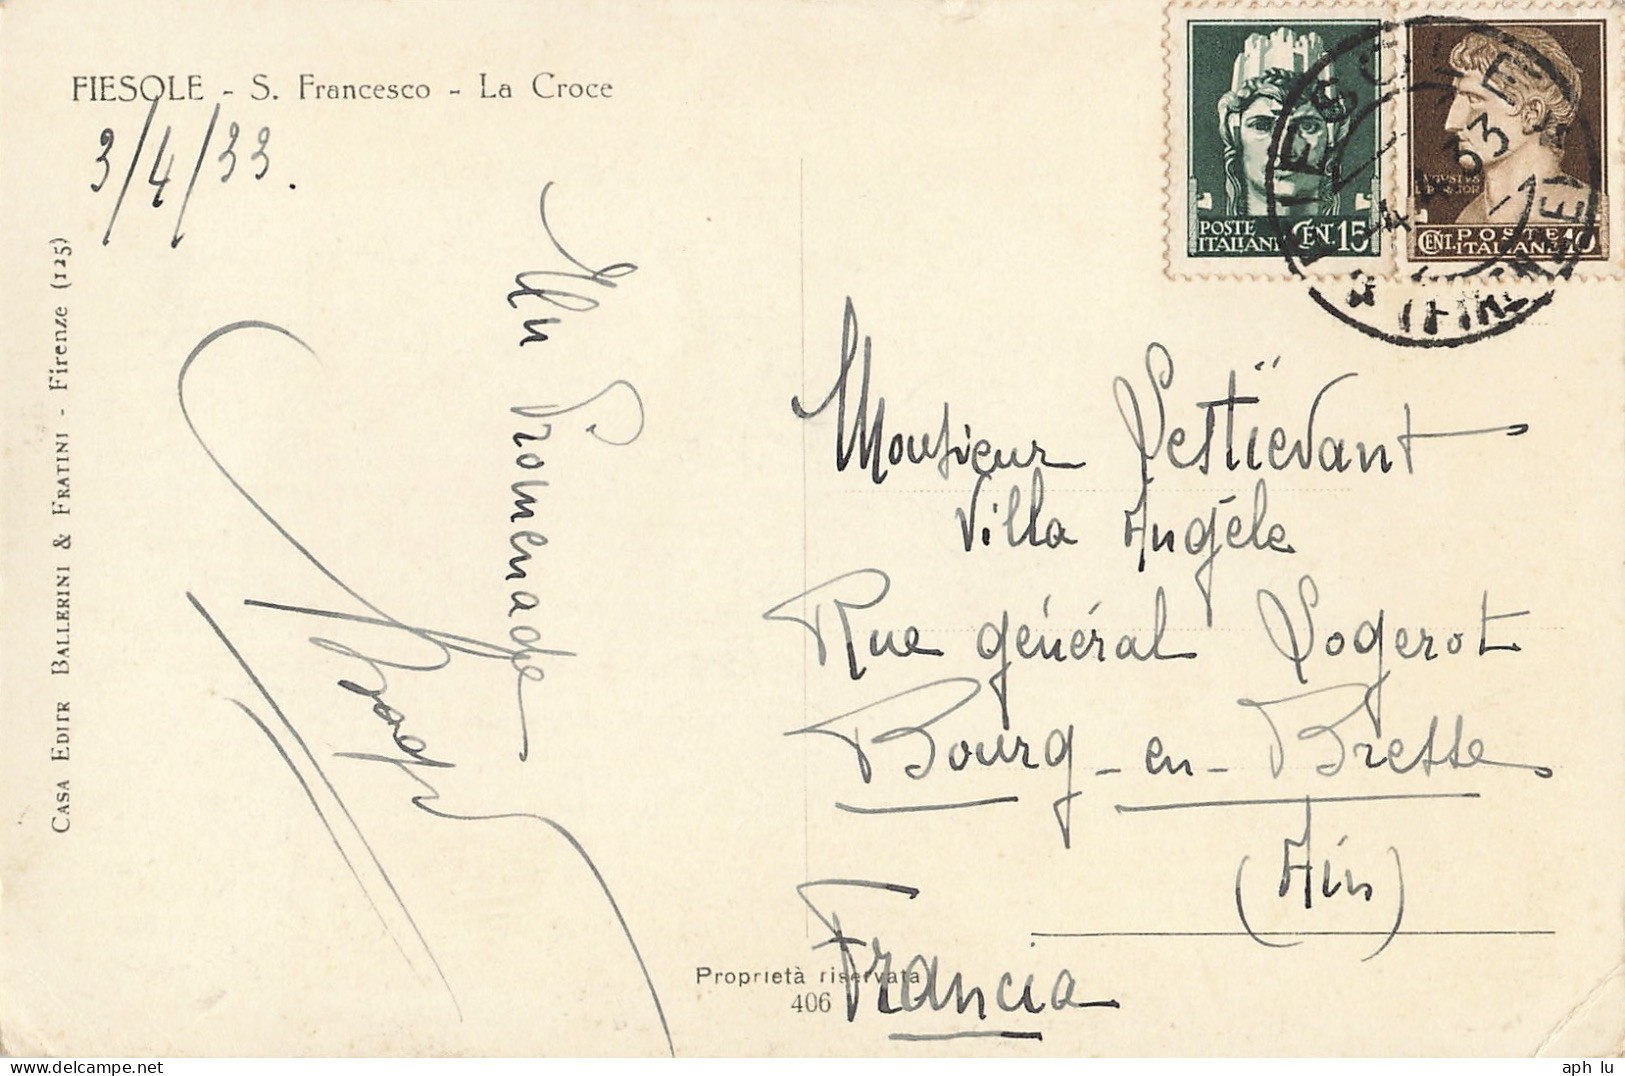 FIESOLE - S. Francesco - La Croce
3/4/33.
CASA EDITR BALLERINI & FRATINI - Firenze (125)
En Promenade
POSTE
ITALIANE
CENT. 15
AVGVSTVS
CENT. POSTE
ITALIANE 10
FIESOLE
33
Monsieur Lestiévant
Villa Angèle
Rue général Logerot
Bourg-en-Bresse
(Ain)
Francia
Proprietà riservata
406
aph lu